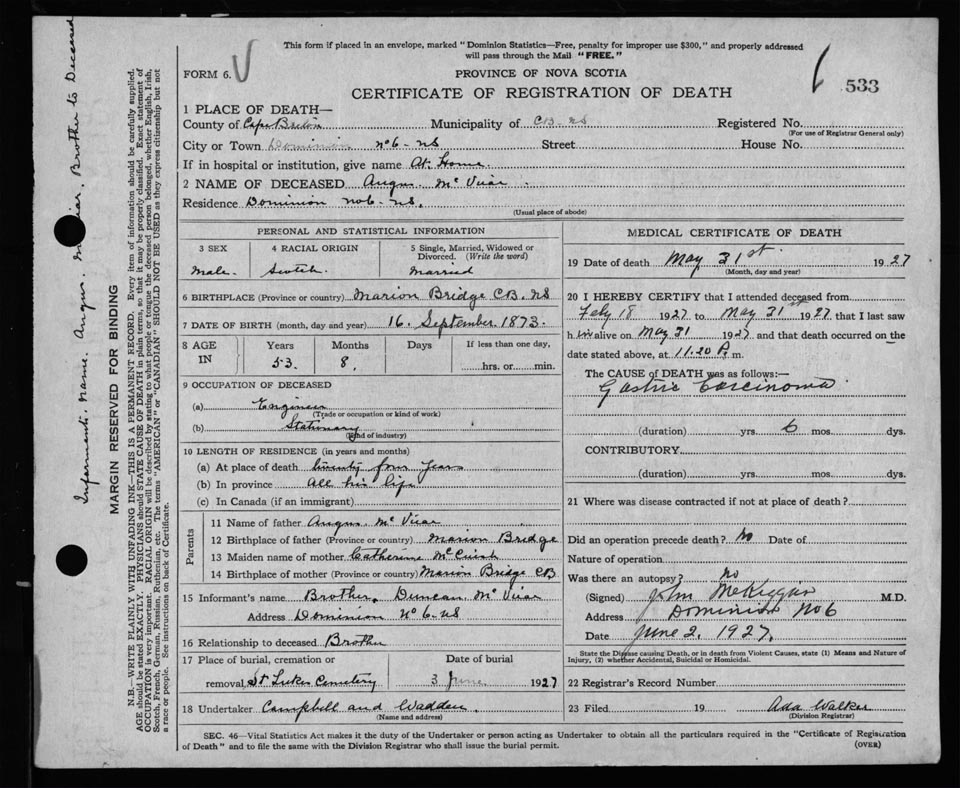 This form if placed in an envelope, marked "Dominion Statistics—Free, penalty for improper use $300," and properly addressed
will pass through the Mail "FREE."
FORM 6. V
PROVINCE OF NOVA SCOTIA
CERTIFICATE OF REGISTRATION OF DEATH
533
1 PLACE OF DEATH—
County of Cape Breton Municipality of CB-NS Registered No.
(For use of Registrar General only)
City or Town Dominion No 6-NS Street House No.
If in hospital or institution, give name At Home.
2 NAME OF DECEASED Angus McVicar.
Residence Dominion No 6-NS.
(Usual place of abode)
PERSONAL AND STATISTICAL INFORMATION
3 SEX 4 RACIAL ORIGIN 5 Single, Married, Widowed or
Divorced. (Write the word)
Male. Scotch. Married
6 BIRTHPLACE (Province or country) Marion Bridge CB. NS
7 DATE OF BIRTH (month, day and year) 16. September. 1873.
8 AGE IN Years Months Days If less than one day,
53 8, hrs. or min.
9 OCCUPATION OF DECEASED
(a) Engineer
(Trade or occupation or kind of work)
(b) Stationary
(Kind of industry)
10 LENGTH OF RESIDENCE (in years and months)
(a) At place of death twenty four Years
(b) In province all his life
(c) In Canada (if an immigrant)
Parents
11 Name of father Angus McVicar
12 Birthplace of father (Province or country) Marion Bridge
13 Maiden name of mother Catherine
14 Birthplace of mother (Province or country) Marion Bridge CB
15 Informant's name Brother, Duncan McVicar
Address Dominion No 6-NS
16 Relationship to deceased Brother
17 Place of burial, cremation or Date of burial
removal St Lukes Cemetery 3 June 1927
18 Undertaker Campbell and Wadden.
(Name and address)
MEDICAL CERTIFICATE OF DEATH
19 Date of death May 31st 1927
(Month, day and year)
20 I HEREBY CERTIFY that I attended deceased from
Feby 18 1927 to May 31st 1927 that I last saw
him alive on May 31 1927 and that death occurred on the
date stated above, at 11.20 P. m.
The CAUSE of DEATH was as follows:—
Gastric Carcinoma
(duration) yrs. 6 mos. dys.
CONTRIBUTORY
(duration) yrs. mos. dys.
21 Where was disease contracted if not at place of death?
Did an operation precede death? No Date of
Nature of operation
Was there an autopsy? no
(Signed) John McKiggan M.D.
Address Dominion No 6
Date June 2. 1927.
State the Disease causing Death, or in death from Violent Causes, state (1) Means and Nature of
Injury, (2) whether Accidental, Suicidal or Homicidal.
22 Registrar's Record Number
23 Filed 19 Ada Walker
(Division Registrar)
SEC. 46—Vital Statistics Act makes it the duty of the Undertaker or person acting as Undertaker to obtain all the particulars required in the "Certificate of Registration
of Death" and to file the same with the Division Registrar who shall issue the burial permit.
(OVER)
Informant. Name. Angus. McVicar. Brother to Deceased
MARGIN RESERVED FOR BINDING
N.B.—WRITE PLAINLY WITH UNFADING INK—THIS IS A PERMANENT RECORD. Every item of information should be carefully supplied.
AGE should be stated EXACTLY. PHYSICIANS should STATE CAUSE OF DEATH in plain terms, so that it may be properly classified. Exact statement of
OCCUPATION is very important. RACIAL ORIGIN will be described by stating to what people or tongue the deceased person belonged, whether English, Irish,
Scotch, French, German, Russian, Ruthenian, etc. The terms "AMERICAN" or "CANADIAN" SHOULD NOT BE USED as they express citizenship but not
a race or people. See instructions on back of Certificate.